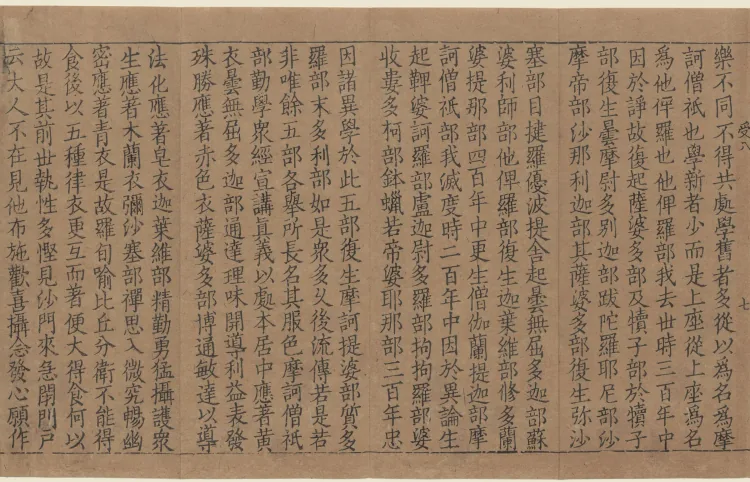 樂不同不得共處學舊者多從以為名為摩
訶僧祇也學新者少而是上座從上座為名
為他俾羅也他俾羅部我去世時三百年中
因於諍故復起薩婆多部及犢子部於犢子
部復生曇摩尉多別迦部跋陀羅耶尼部沙
摩帝部沙那利迦部其薩婆多部復生弥沙
塞部目揵羅優波提舍起曇無屈多迦部蘇
婆利師部他俾羅部復生迦葉維部修多蘭
婆提那部四百年中更生僧伽蘭提迦部摩
訶僧祇部我滅度時二百年中因於異論生
起鞞婆訶羅部盧迦尉多羅部拘拘羅部婆
收婁多柯部鉢蠟若帝婆耶那部三百年忠
因諸異學於此五部復生摩訶提婆部質多
羅部末多利部如是衆多久後流傳若是若
非唯餘五部各舉所長名其服色摩訶僧祇
部勤學衆經宣講真義以處本居中應著黄
衣曇無屈多迦部通達理味開導利益表發
殊勝應著赤色衣薩婆多部博通敏達以導
法化應著皂衣迦葉維部精勤勇猛攝護衆
生應著木蘭衣彌沙塞部禪思入微究暢幽
密應著青衣是故羅旬喻比丘分衛不能得
食後以五種律衣更互而著便大得食何以
故是其前世執性多慳見沙門來急閉門户
云大人不在見他布施歡喜攝念發心願作
受八
七